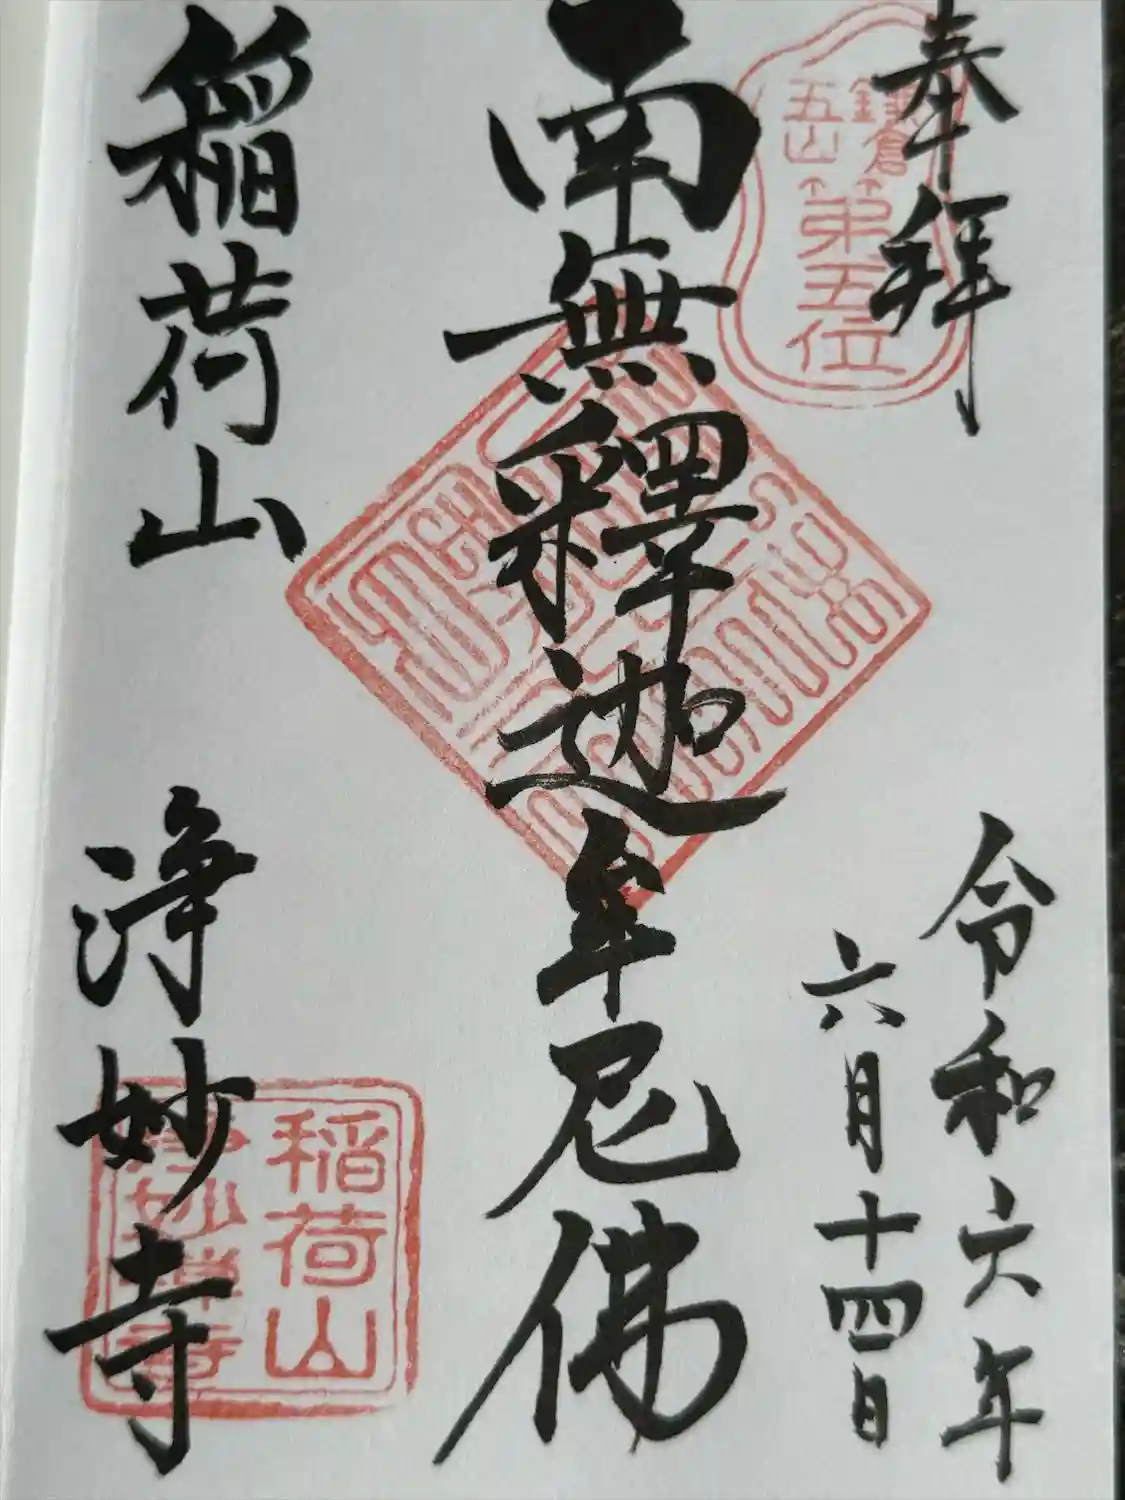 奉拝
鎌倉
五山
第五位
令和六年
六月十四日
南無釋迦牟尼佛
稲荷山
浄妙寺
稲荷山